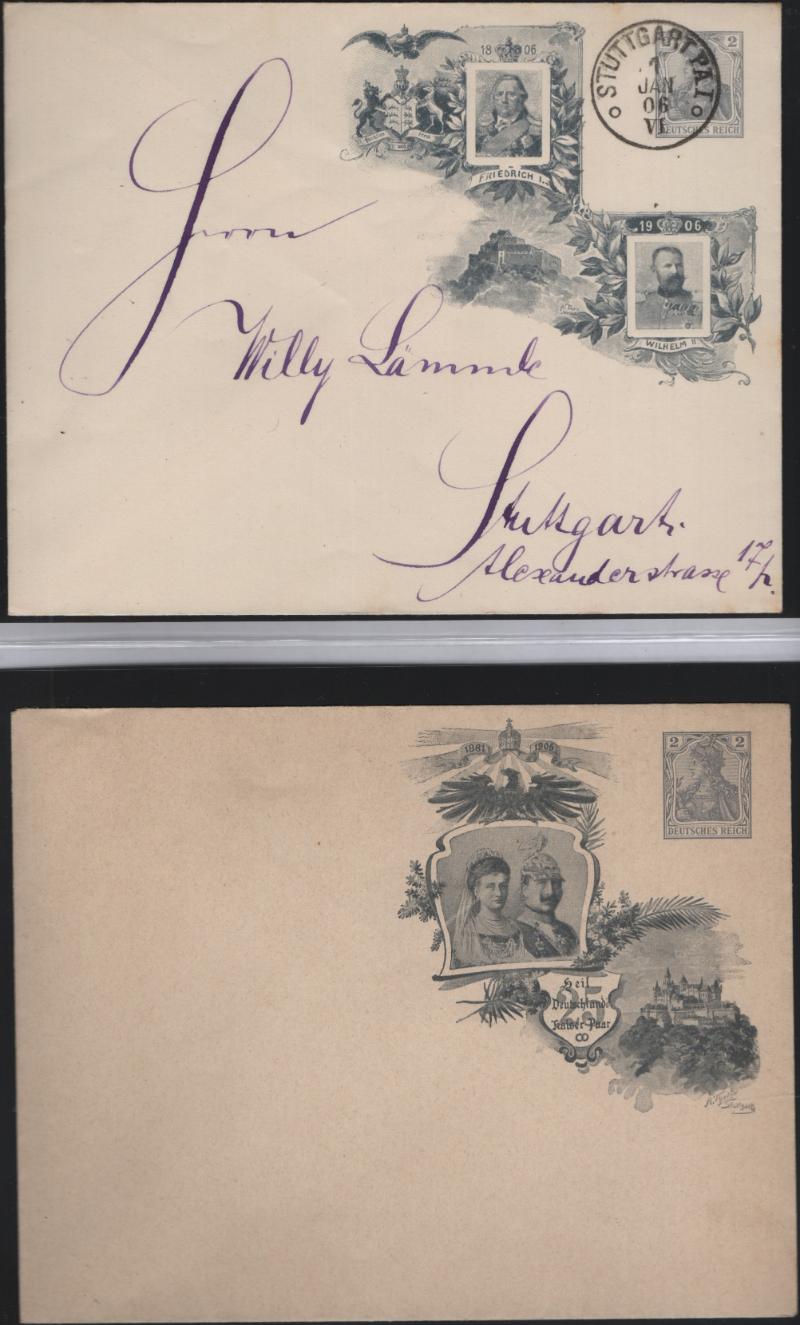 1806
FRIEDRICH I.
STUTTGART P.A.1
1
JAN
06
VI
2
DEUTSCHES REICH
1906
WILHELM II
Herrn
Willy Lämmle
Stuttgart.
Alexanderstrasse 17/2.
1881 1906
2 2
DEUTSCHES REICH
25
Heil
Deutschlands
Kaiser-Paar